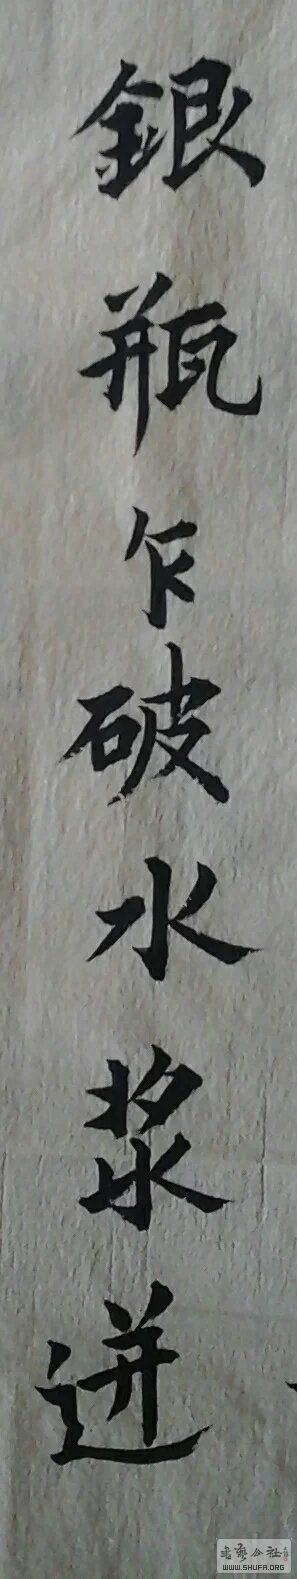 銀瓶乍破水浆迸
书法公社
WWW.SHUFA.ORG